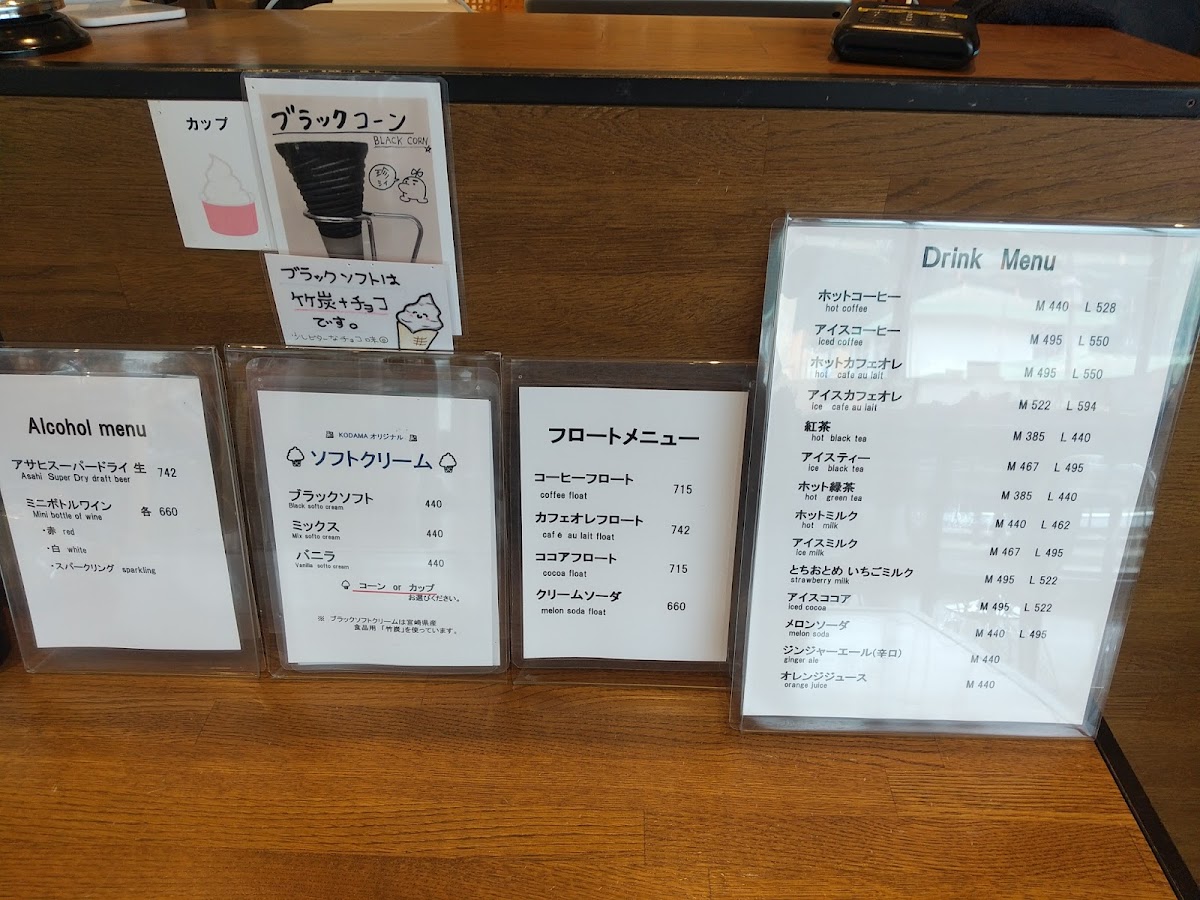 カップ
ブラックコーン
BLACK CORN
珍シイ
ブラックソフトは
竹炭+チョコ
です。
少しビターなチョコ味
Alcohol menu
アサヒスーパードライ 生 742
Asahi Super Dry draft beer
ミニボトルワイン 各 660
Mini bottle of wine
・赤 red
・白 white
・スパークリング sparkling
KODAMA オリジナル
ソフトクリーム
ブラックソフト 440
Black softo cream
ミックス 440
Mix softo cream
バニラ 440
Vanilla softo cream
コーン or カップ
お選びください。
※ ブラックソフトクリームは宮崎県産
食品用 「竹炭」を使っています。
フロートメニュー
コーヒーフロート 715
coffee float
カフェオレフロート 742
café au lait float
ココアフロート 715
cocoa float
クリームソーダ 660
melon soda float
Drink Menu
ホットコーヒー M 440 L 528
hot coffee
アイスコーヒー M 495 L 550
Iced coffee
ホットカフェオレ M 495 L 550
hot cafe au lait
アイスカフェオレ M 522 L 594
ice cafe au lait
紅茶 M 385 L 440
hot black tea
アイスティー M 467 L 495
ice black tea
ホット緑茶 M 385 L 440
hot green tea
ホットミルク M 440 L 462
hot milk
アイスミルク M 467 L 495
Ice milk
とちおとめ いちごミルク M 495 L 522
strawberry milk
アイスココア M 495 L 522
iced cocoa
メロンソーダ M 440 L 495
melon soda
ジンジャーエール(辛口) M 440
ginger ale
オレンジジュース M 440
orange juice